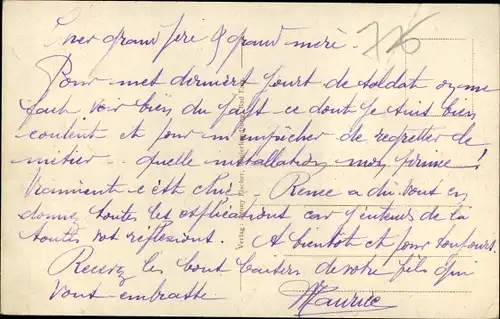 Cher grand père & grand mère.
776
Pour mes derniers jours de soldat on me
fait voir bien du pays ce dont je suis bien
content et pour m'empêcher de regretter le
métier.. quelle installation, mon prince!
Vraiment c'est chic. Renée a dû vous en
donner toutes les explications car j'entends de là
toutes vos réflexions. A bientôt et pour toujours.
Recevez les bons baisers de votre fils qui
vous embrasse.
Maurice
Verlag: